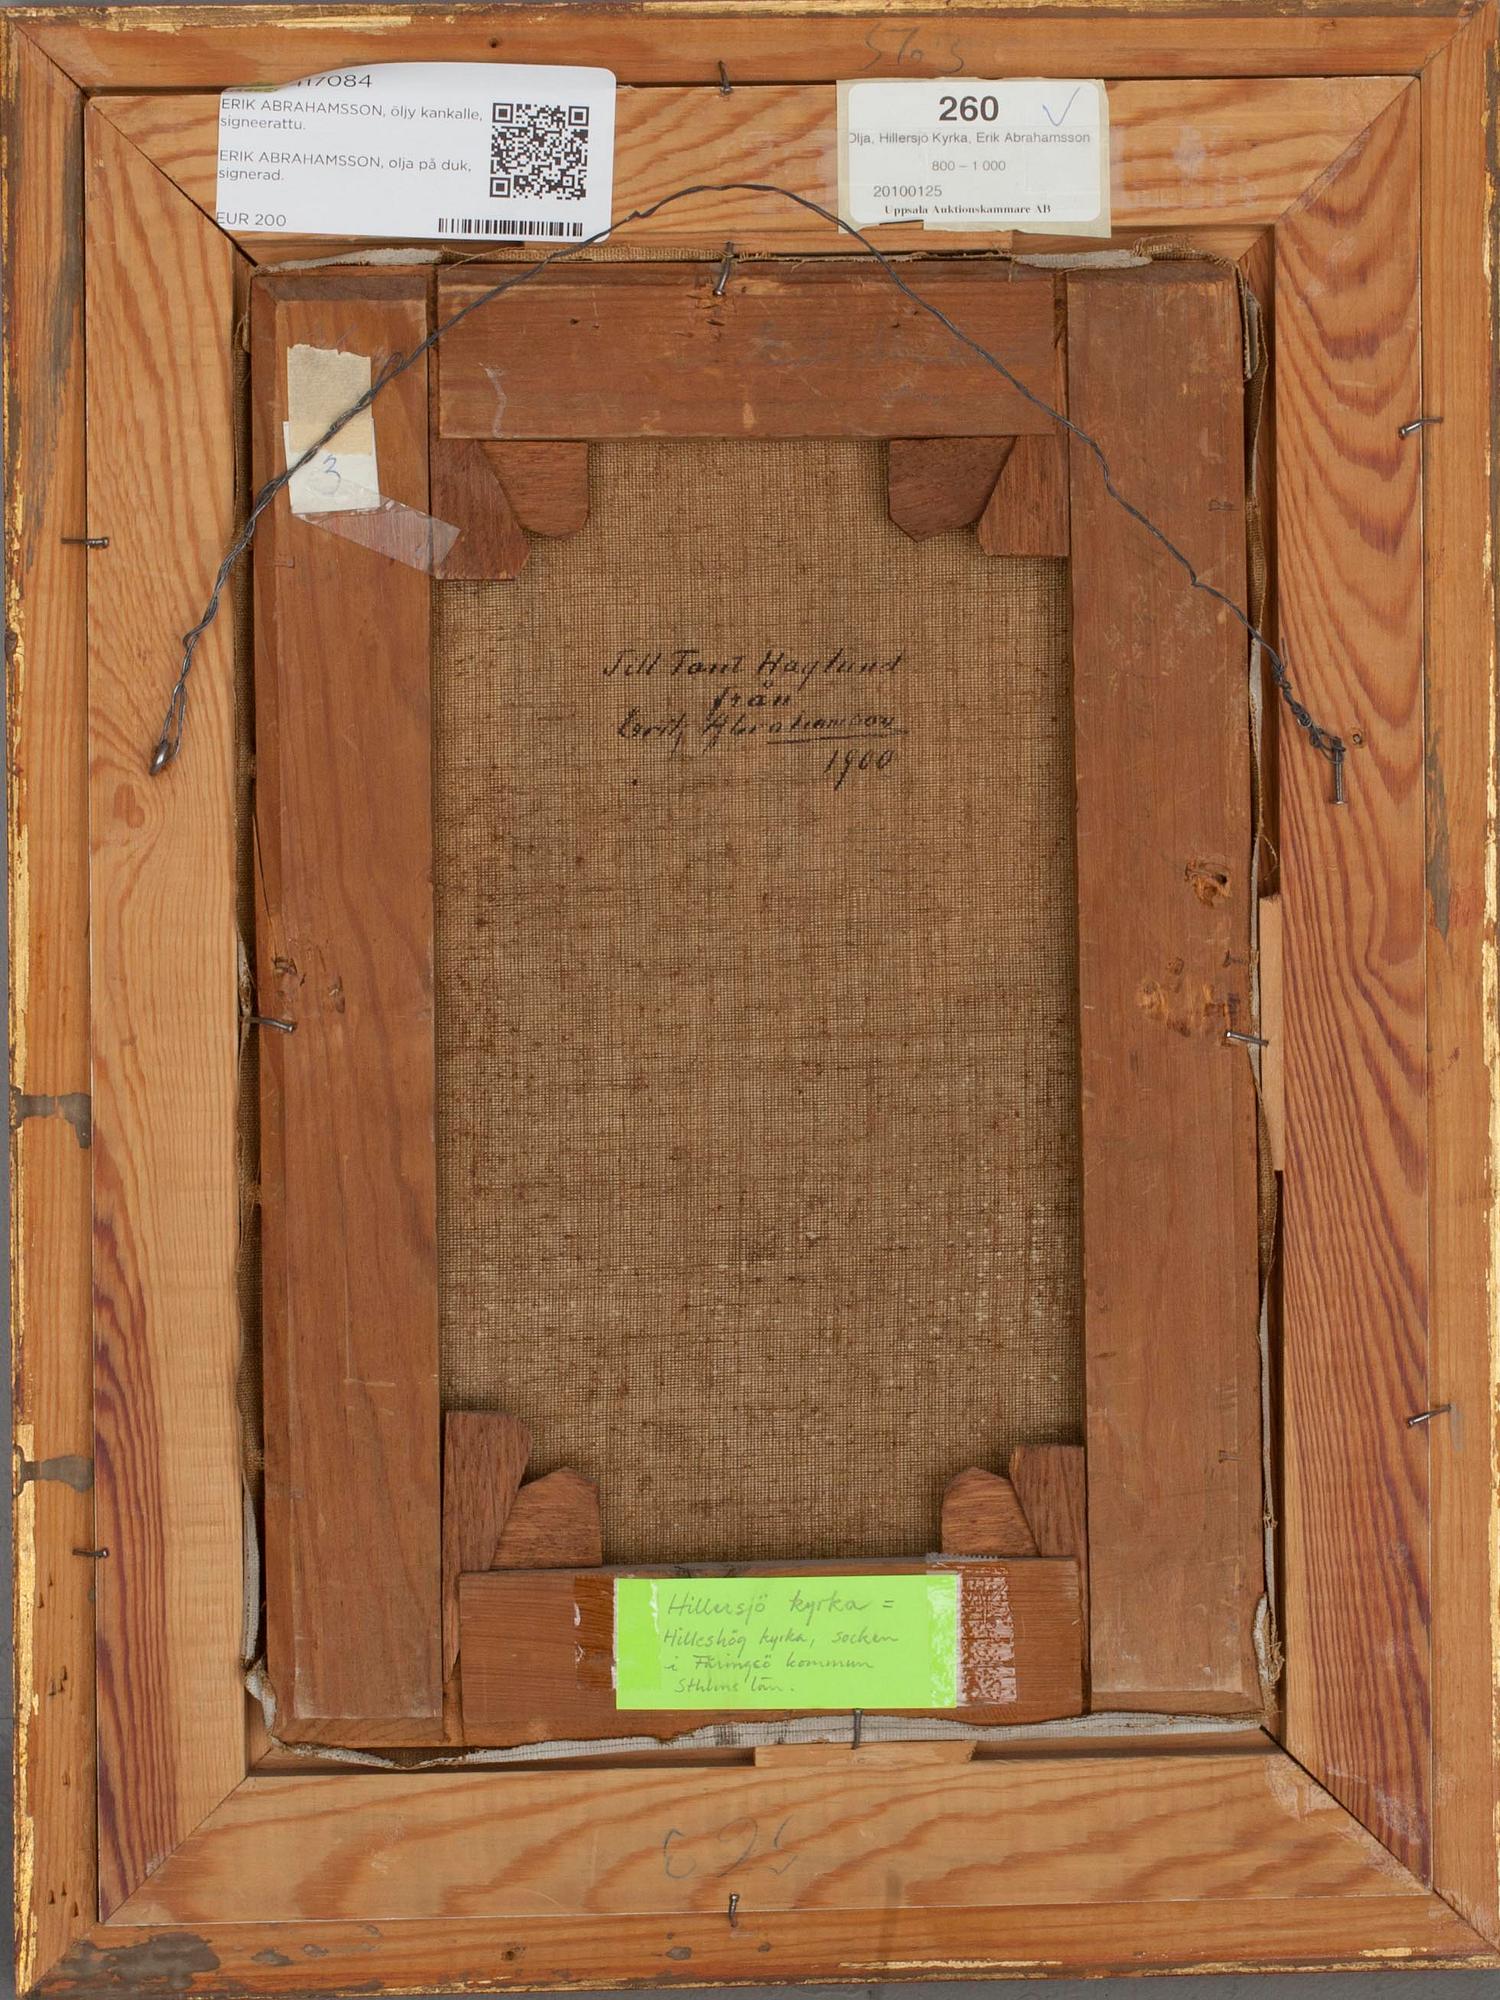 117084
ERIK ABRAHAMSSON, öljy kankalle,
signeerattu.
ERIK ABRAHAMSSON, olja på duk,
signerad.
EUR 200
260
Olja, Hillersjö Kyrka, Erik Abrahamsson
800 – 1 000
20100125
Uppsala Auktionskammare AB
3
Till Tant Haglund
från
Erik Abrahamson
1900
Hillersjö kyrka =
Hilleshög kyrka, socken
i Färingsö kommun
Sthlms län.